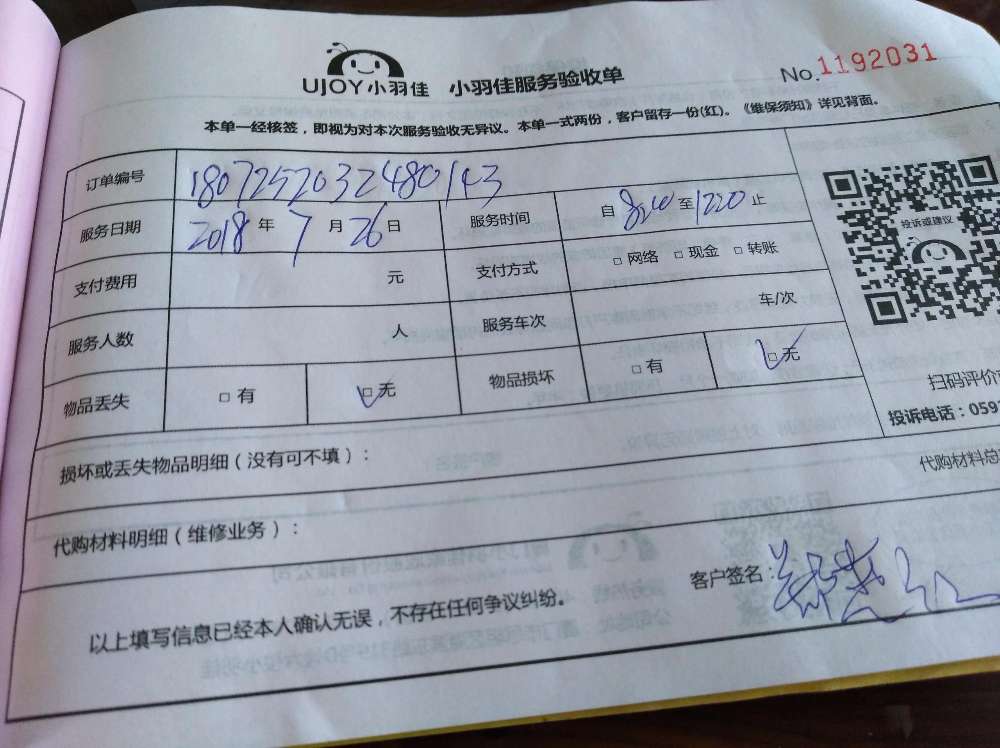 UJOY小羽佳 小羽佳服务验收单 No.1192031
本单一经核签，即视为对本次服务验收无异议。本单一式两份，客户留存一份(红)。《维保须知》详见背面。
订单编号 1807252032480143
服务日期 2018 年 7 月 26 日 服务时间 自 820 至 1220 止
投诉或建议
支付费用 元 支付方式 □ 网络 □ 现金 □ 转账
服务人数 人 服务车次 车/次
物品丢失 □ 有 □ 无 物品损坏 □ 有 □ 无
扫码评价
投诉电话：059
损坏或丢失物品明细（没有可不填）：
代购材料总
代购材料明细（维修业务）：
以上填写信息已经本人确认无误，不存在任何争议纠纷。 客户签名：